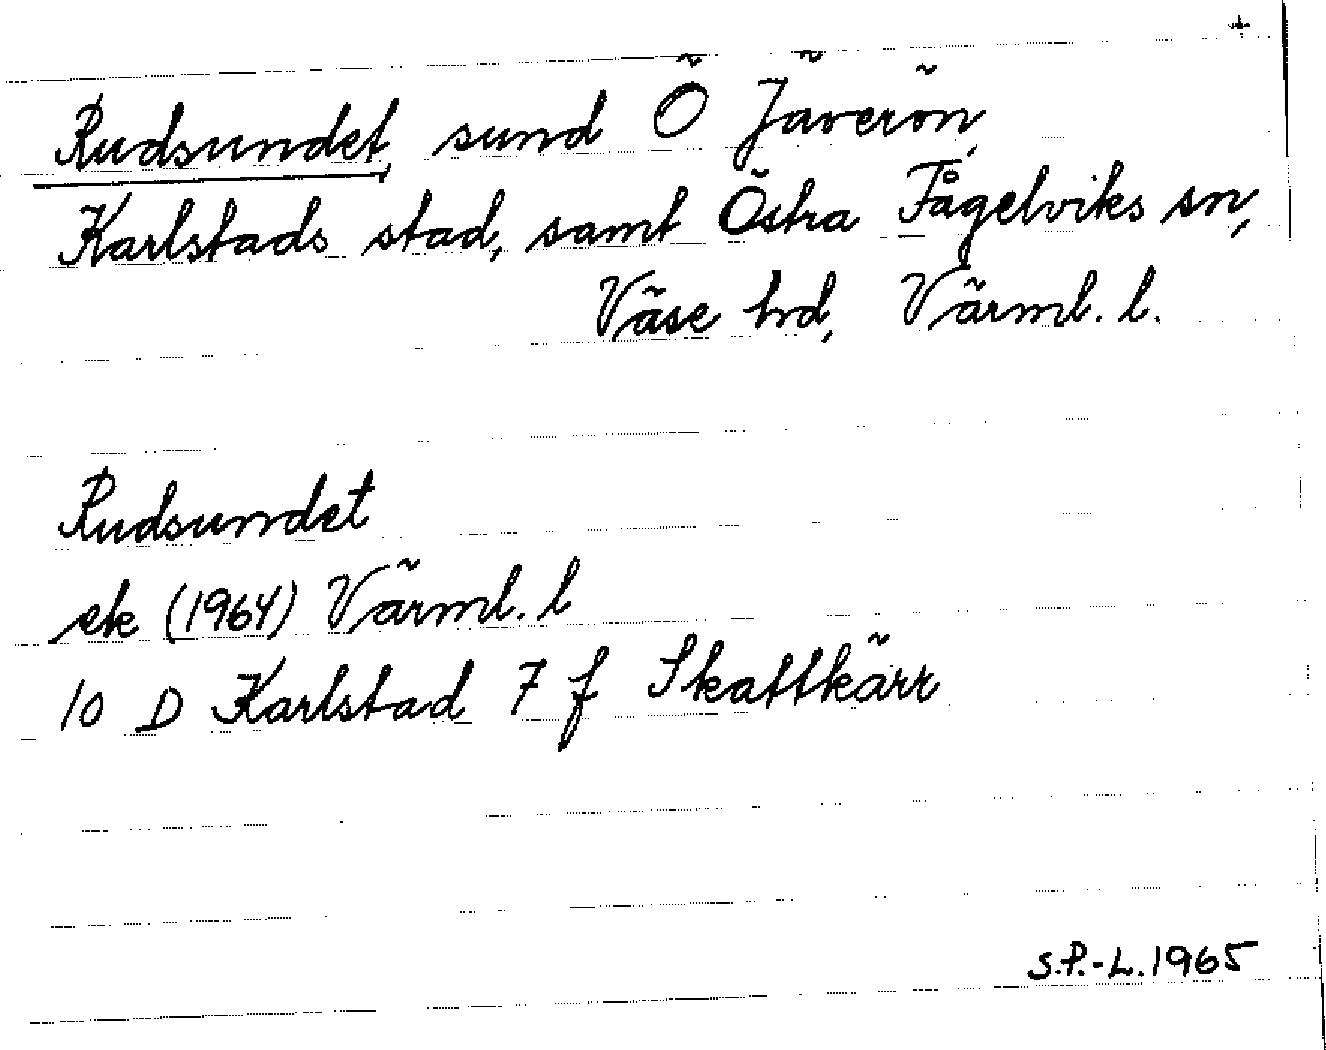 +
Rudsundet, sund Ö Jäverön,
Karlstads stad, samt Östra Fågelviks sn,
Väse hd, Värml. l.
Rudsundet
ek (1964) Värml. l
10 D Karlstad 7 f Skattkärr
S.P.-L. 1965